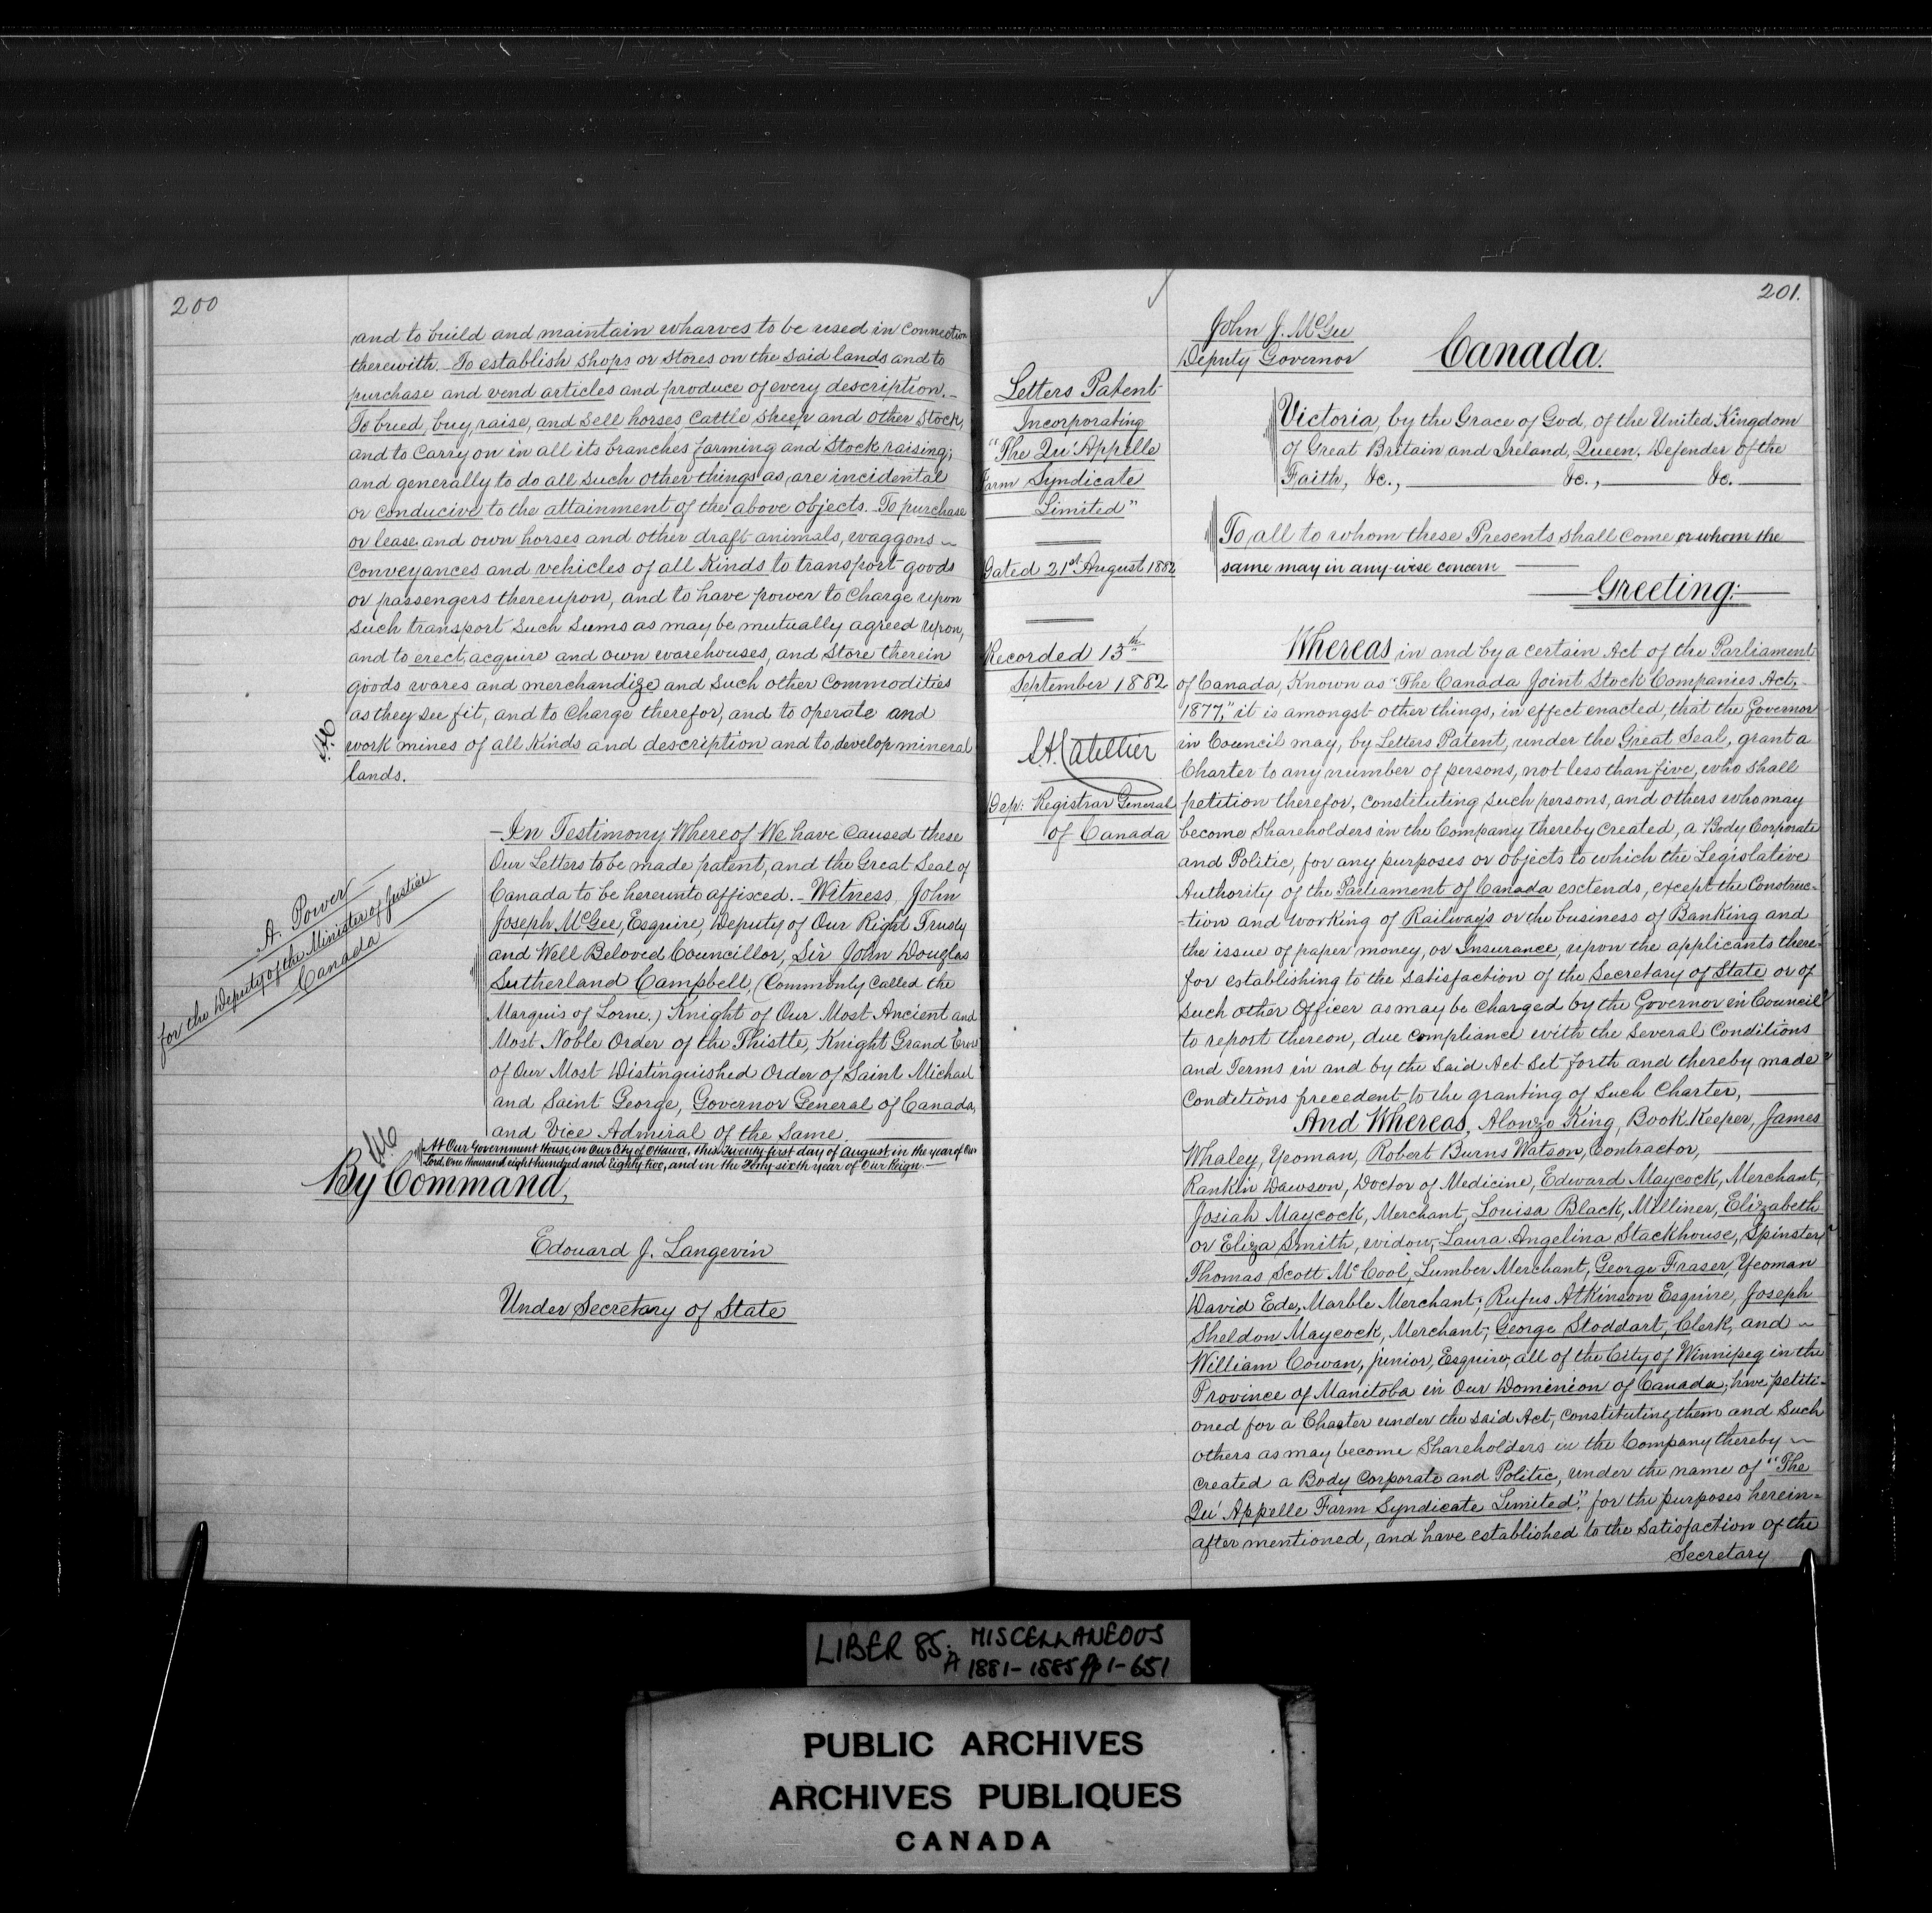 200
and to build and maintain wharves to be used in connection
therewith. To establish shops or stores on the said lands and to
purchase and vend articles and produce of every description.
To breed, buy, raise, and sell horses cattle sheep and other stock,
and to carry on in all its branches farming and stock raising;
and generally to do all such other things as are incidental
or conducive to the attainment of the above objects. To purchase
or lease and own horses and other draft animals, waggons
conveyances and vehicles of all kinds to transport goods
or passengers thereupon, and to have power to charge upon
such transport such sums as may be mutually agreed upon,
and to erect, acquire and own warehouses, and store therein
goods wares and merchandize and such other commodities
as they see fit, and to charge therefor, and to operate and
work mines of all kinds and description and to develop mineral
lands.
In Testimony Whereof We have caused these
Our Letters to be made patent, and the Great Seal of
Canada to be hereunto affixed. Witness, John
Joseph McGee, Esquire, Deputy of Our Right Trusty
and Well Beloved Councillor, Sir John Douglas
Sutherland Campbell, (Commonly called the
Marquis of Lorne.) Knight of Our Most Ancient and
Most Noble Order of the Thistle, Knight Grand Cross
of Our Most Distinguished Order of Saint Michael
and Saint George, Governor General of Canada,
and Vice Admiral of the Same.
At Our Government House, in Our City of Ottawa, this Twenty first day of August in the year of Our
Lord, One thousand eight hundred and Eighty two, and in the Forty sixth year of Our Reign.
By Command,
Edouard J. Langevin
Under Secretary of State
A. Power
for the Deputy of the Minister of Justice
Canada
201.
John J. McGee
Deputy Governor
Canada.
Letters Patent
Incorporating
"The Qu'Appelle
Farm Syndicate
Limited"
Dated 21st August 1882
Recorded 13th
September 1882
Dep: Registrar General
of Canada
Victoria, by the Grace of God, of the United Kingdom
of Great Britain and Ireland, Queen, Defender of the
Faith, &c., &c., &c.
To all to whom these Presents shall come or whom the
same may in any-wise concern
Greeting:
Whereas in and by a certain Act of the Parliament
of Canada, known as "The Canada Joint Stock Companies Act,
1877," it is amongst other things, in effect enacted, that the Governor
in Council may, by Letters Patent, under the Great Seal, grant a
Charter to any number of persons, not less than five, who shall
petition therefor, constituting such persons, and others who may
become shareholders in the Company thereby created, a Body Corporate
and Politic, for any purposes or objects to which the Legislative
Authority of the Parliament of Canada extends, except the Construc-
-tion and working of Railways or the business of Banking and
the issue of paper money, or Insurance, upon the applicants there-
for establishing to the satisfaction of the Secretary of State or of
such other Officer as may be charged by the Governor in Council
to report thereon, due compliance with the several Conditions
and Terms in and by the said Act set forth and thereby made
Conditions precedent to the granting of such Charter,
And Whereas, Alonzo King, Book Keeper, James
Whaley, Yeoman, Robert Burns Watson, Contractor,
Rankin Dawson, Doctor of Medicine, Edward Maycock, Merchant,
Josiah Maycock, Merchant, Louisa Black, Milliner, Elizabeth
or Eliza Smith, widow, Laura Angelina Stackhouse, Spinster,
Thomas Scott McCool, Lumber Merchant, George Fraser, Yeoman
David Ede, Marble Merchant; Rufus Atkinson Esquire, Joseph
Sheldon Maycock, Merchant; George Stoddart, Clerk, and
William Cowan, junior, Esquire, all of the City of Winnipeg in the
Province of Manitoba in Our Dominion of Canada; have petiti-
oned for a Charter under the said Act, constituting them and such
others as may become Shareholders in the Company thereby
created a Body Corporate and Politic, under the name of "The
Qu'Appelle Farm Syndicate Limited", for the purposes herein-
after mentioned, and have established to the satisfaction of the
Secretary
LIBER 85: MISCELLANEOUS
A 1881-1885 pp 1-651
PUBLIC ARCHIVES
ARCHIVES PUBLIQUES
CANADA